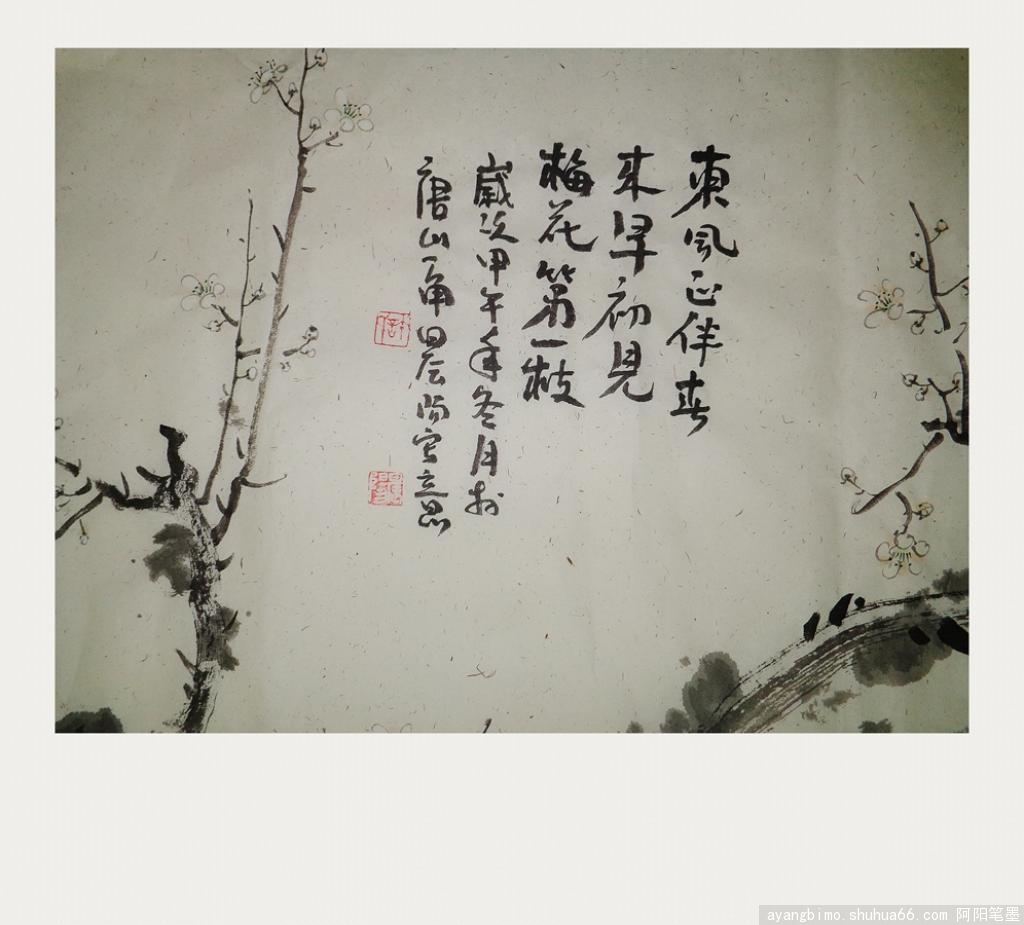 東風正伴春
来早初見
梅花第一枝
歲次甲午年冬月於
唐山一角
ayangbimo.shuhua66.com 阿阳笔墨